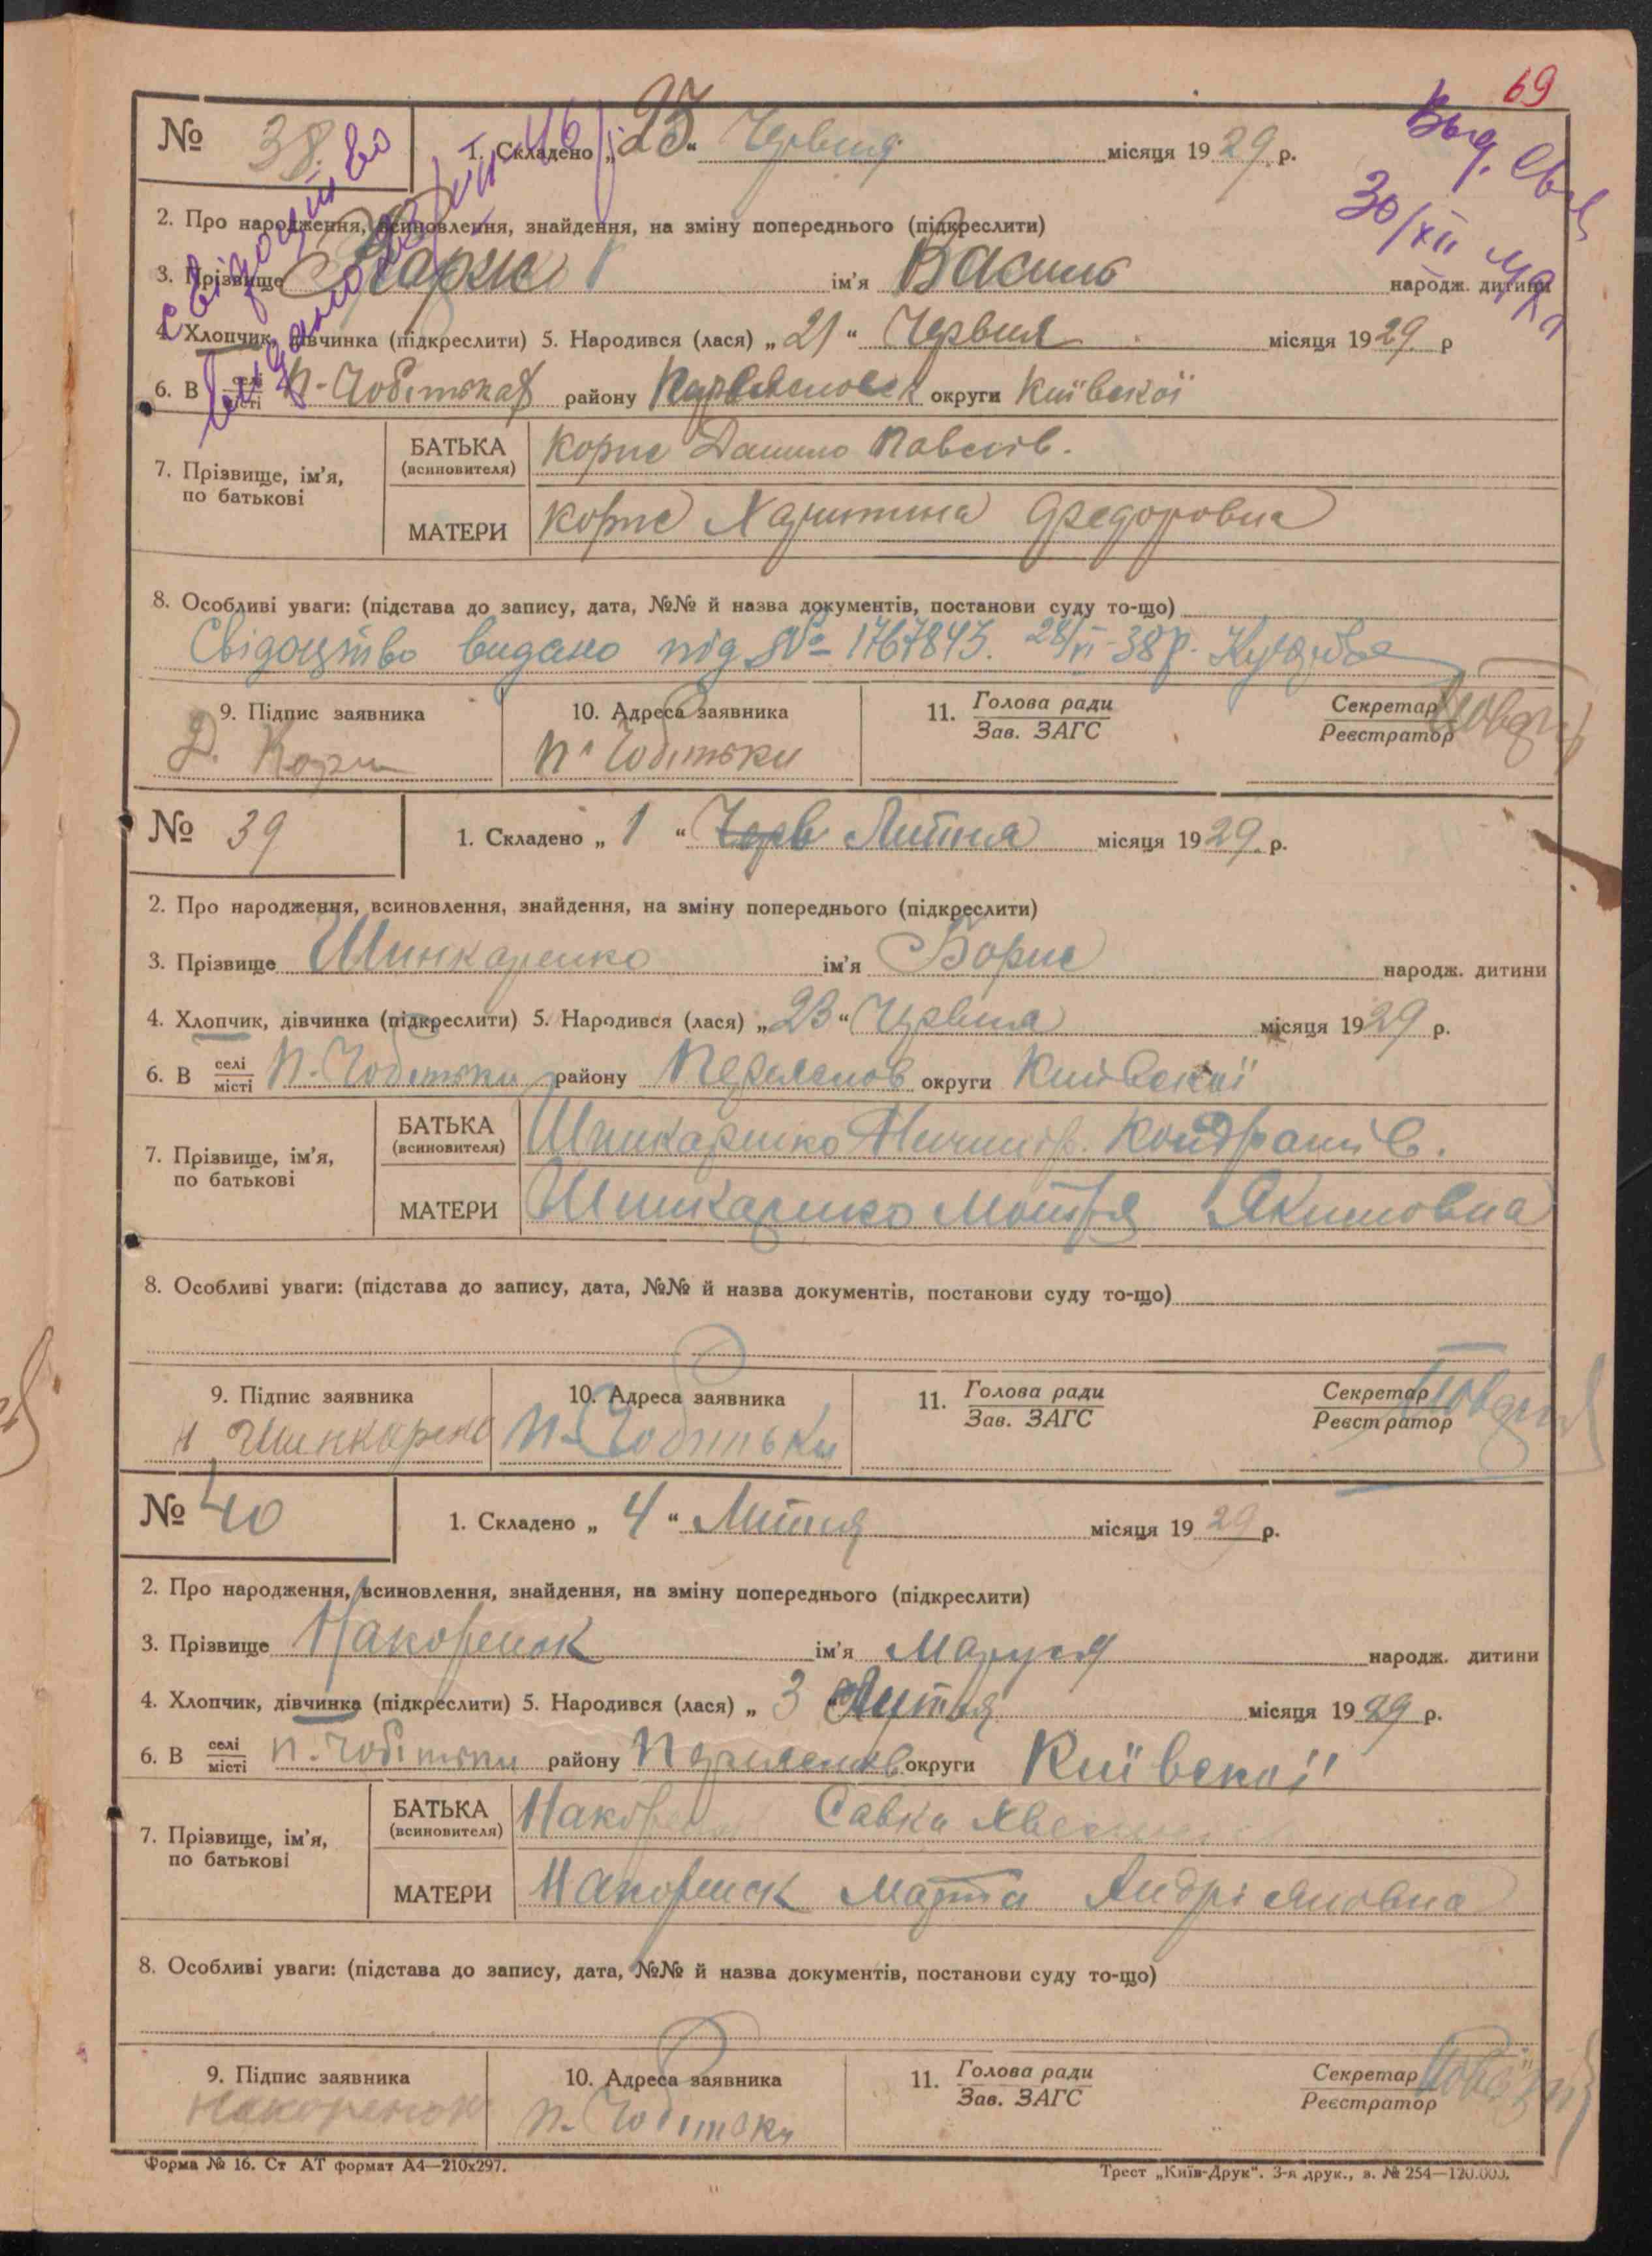 69
№ 38. 1. Складено „25“ Червня місяця 1929 р.
Свідоцтво
Выд.
30/XII
2. Про народження, всиновлення, знайдення, на зміну попереднього (підкреслити)
3. Прізвище Корис ім'я Василь народж. дитини
4. Хлопчик, дівчинка (підкреслити) 5. Народився (лася) „21“ Червня місяця 1929 р
6. В селі/місті П-Чобітьках району округи Київської
7. Прізвище, ім'я, по батькові
БАТЬКА (всиновителя) Корис Данило Павлов.
МАТЕРИ Корис Харитина Федоровна
8. Особливі уваги: (підстава до запису, дата, №№ й назва документів, постанови суду то-що)
Свідоцтво видано під № 1767845. 28/VI-38р.
9. Підпис заявника 10. Адреса заявника 11. Голова ради/Зав. ЗАГС Секретар/Реєстратор
Д. Корис П-Чобітьки
№ 39 1. Складено „1“ Черв Липня місяця 1929 р.
2. Про народження, всиновлення, знайдення, на зміну попереднього (підкреслити)
3. Прізвище Шинкаренко ім'я Борис народж. дитини
4. Хлопчик, дівчинка (підкреслити) 5. Народився (лася) „23“ Червня місяця 1929 р.
6. В селі/місті П. Чобітьки району округи Київської
7. Прізвище, ім'я, по батькові
БАТЬКА (всиновителя) Шинкаренко Ничипір. Кондратів.
МАТЕРИ Шинкаренко Мотря Якимовна
8. Особливі уваги: (підстава до запису, дата, №№ й назва документів, постанови суду то-що)
9. Підпис заявника 10. Адреса заявника 11. Голова ради/Зав. ЗАГС Секретар/Реєстратор
Н Шинкаренко П-Чобітьки
№ 40 1. Складено „4“ Липня місяця 1929 р.
2. Про народження, всиновлення, знайдення, на зміну попереднього (підкреслити)
3. Прізвище Накоренок ім'я Маруся народж. дитини
4. Хлопчик, дівчинка (підкреслити) 5. Народився (лася) „3 Липня місяця 1929 р.
6. В селі/місті П. Чобітьки району округи Київської
7. Прізвище, ім'я, по батькові
БАТЬКА (всиновителя) Накоренок Савка
МАТЕРИ Накоренок Марта Андріяновна
8. Особливі уваги: (підстава до запису, дата, №№ й назва документів, постанови суду то-що)
9. Підпис заявника 10. Адреса заявника 11. Голова ради/Зав. ЗАГС Секретар/Реєстратор
Накоренок П-Чобітьки
Форма № 16. Ст АТ формат А4—210х297. Трест „Київ-Друк“. 3-я друк., з. № 254—120.000.